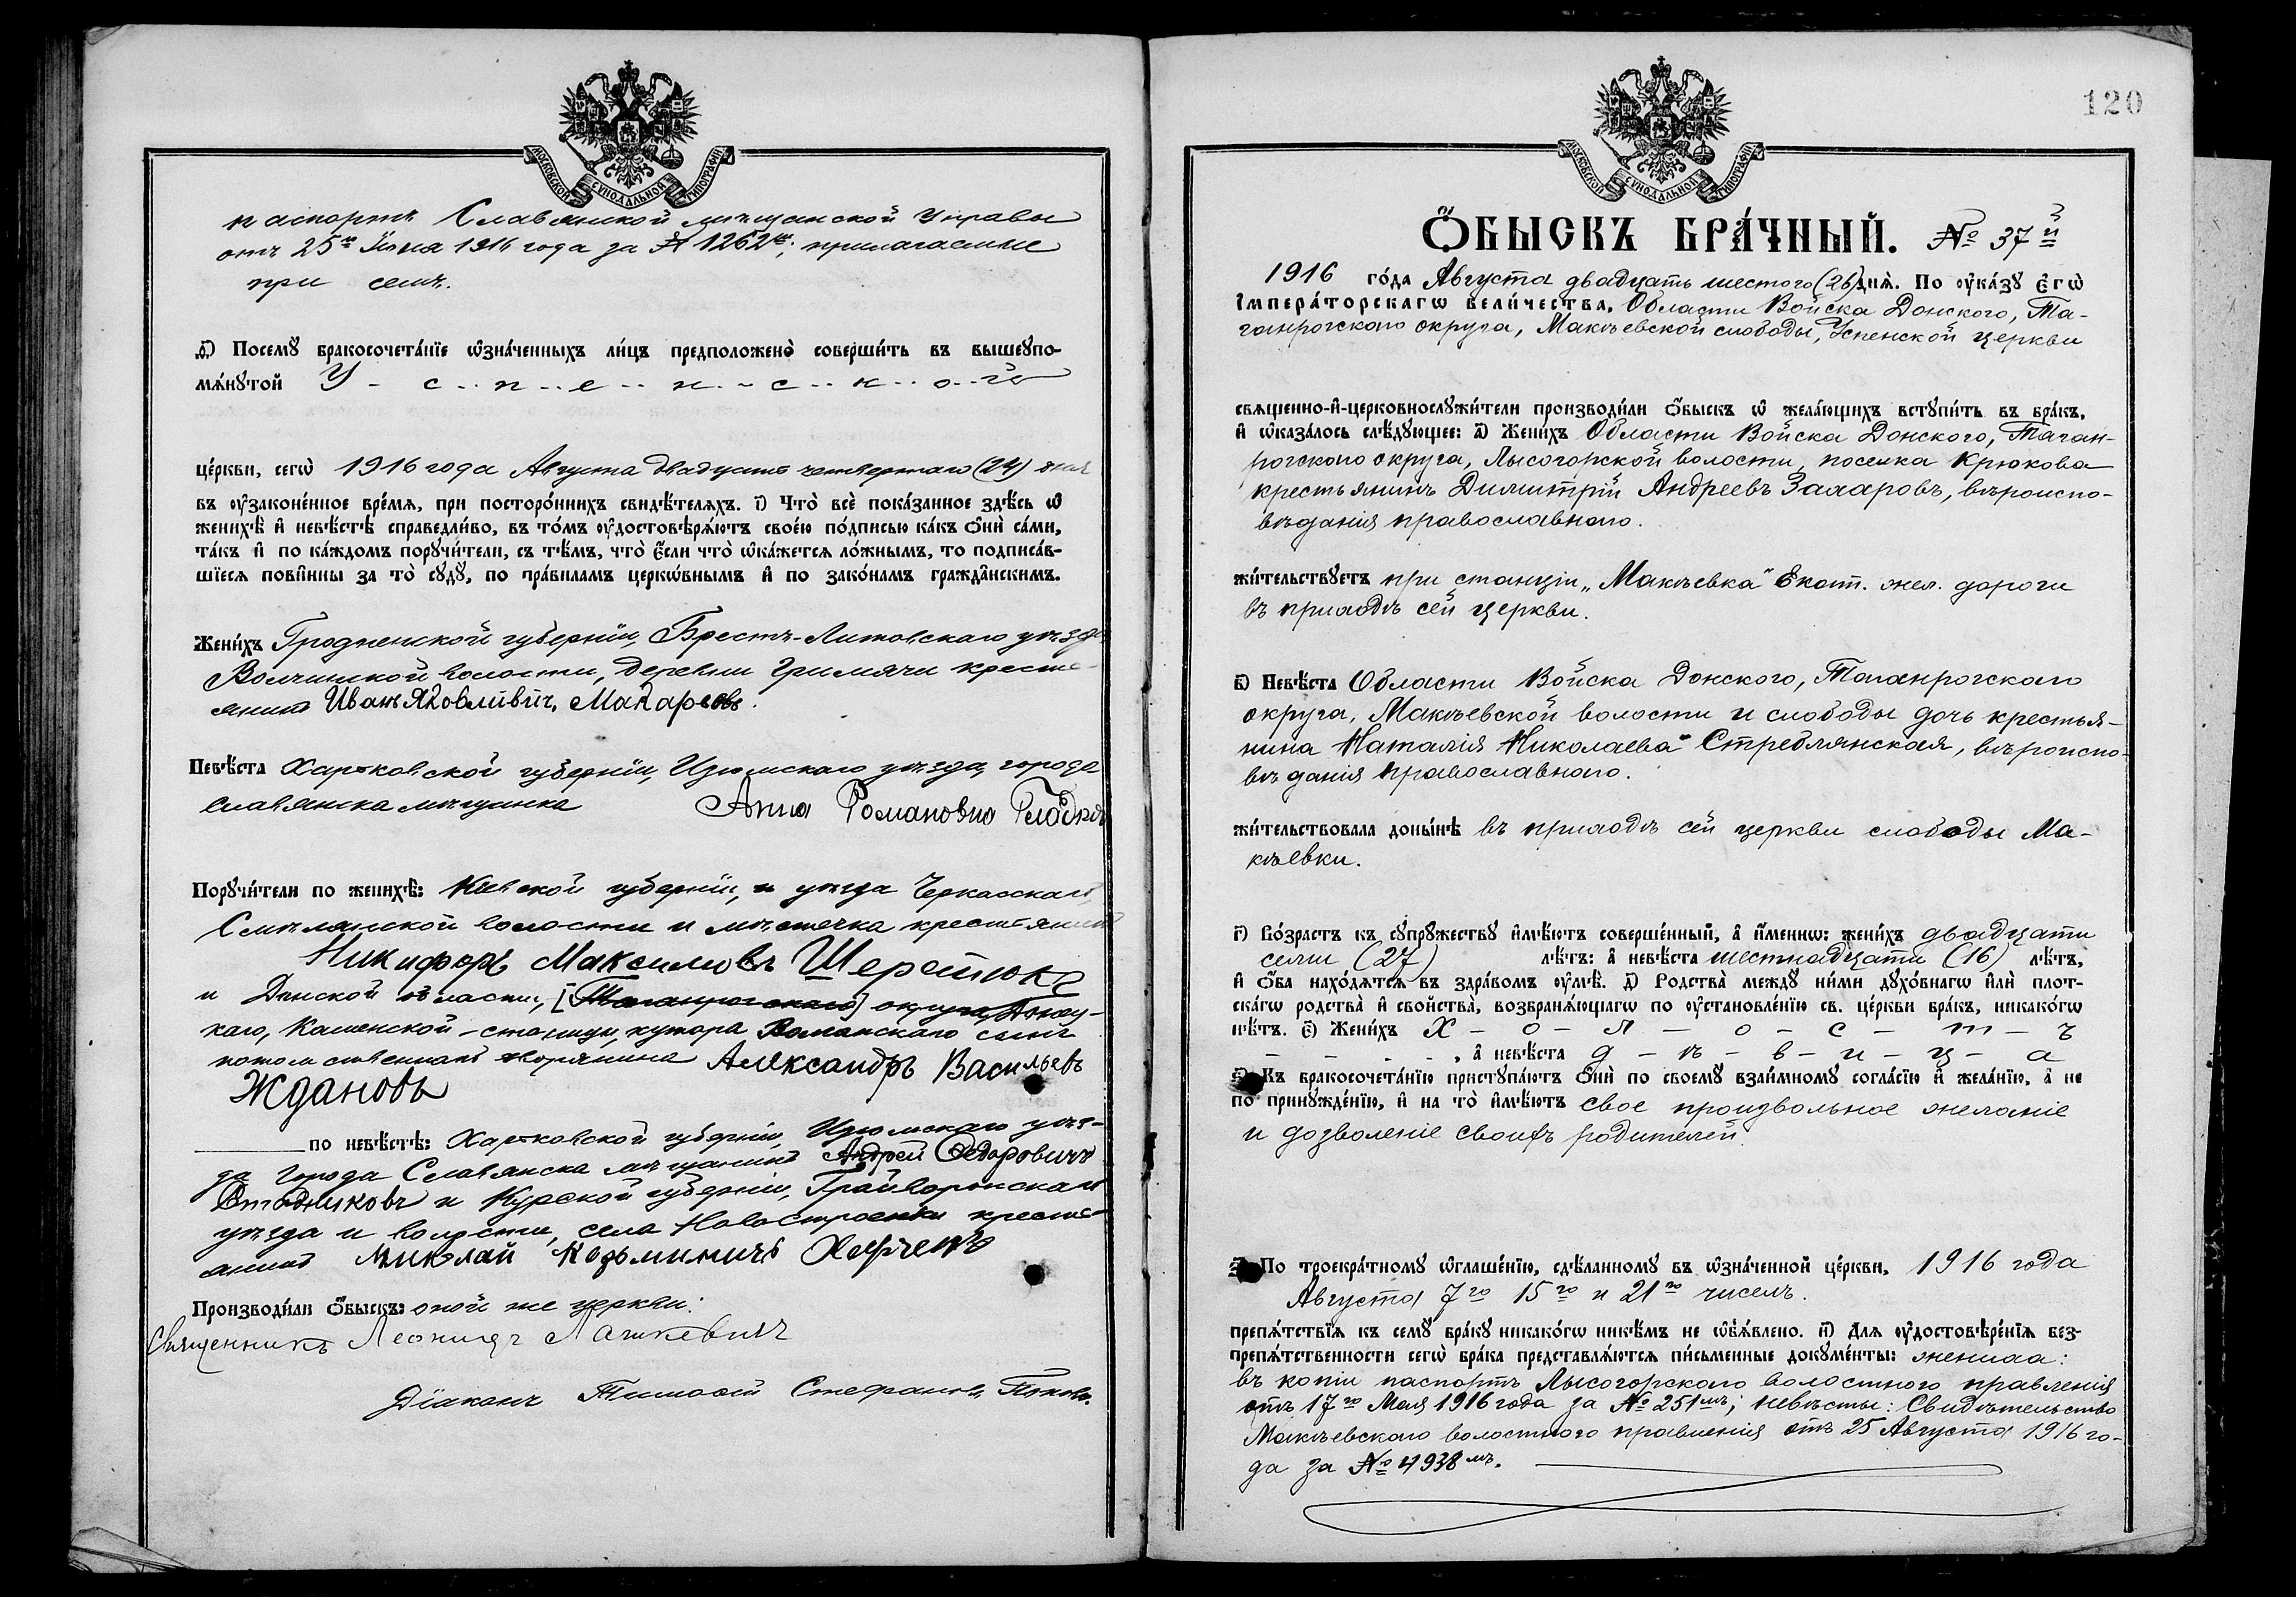 МОСКОВСКОЙ СУНОДАЛЬНОЙ ТИПОГРАФІИ
паспортъ Славянской мѣщанской Управы
отъ 25го Іюня 1916 года за № 1262мъ; прилагаемые
при семъ.
Посемꙋ бракосочета́нїе ѡзна́ченныхъ ли́цъ предположено̀ соверши́ть въ вышеꙋпо-
мѧ́нꙋтой У - с - п - е - н - с - к - о - й
це́ркви, сегѡ̀ 1916 года Августа двадцать четвертаго (24) дня
въ ᲂу҆законе́нное вре́мѧ, при посторо́ннихъ свидѣ́телѧхъ. і҃) Что̀ всѐ пока́занное здѣ́сь ѡ҆
женихѣ̀ и҆ невѣ́стѣ справедли́во, въ то́мъ ᲂу҆достовѣрѧ́ютъ свое́ю по́дписью ка́къ ѻ҆нѝ са́ми,
та́къ и҆ по ка́ждомъ порꙋчи́тели, съ тѣ́мъ, что̀ є҆́сли что̀ ѡ҆ка́жетсѧ ло́жнымъ, то подписа́в-
шїесѧ пови́нны за то̀ сꙋдꙋ̀, по пра́виламъ церко́внымъ и҆ по зако́намъ гражда́нскимъ.
Жени́хъ Гродненской губерніи, Брестъ-Литовскаго уѣзда
Волчинской волости, деревни Гримячи кресть-
янинъ Иванъ Яковливичъ Макаревъ.
Невѣ́ста Харьковской губерніи, Изюмскаго уѣзда, города
Славянска мѣщанка Анна Романовна Гладкая
Порꙋчи́тели по женихѣ̀: Кіевской губерніи, и уѣзда Черкасскаго,
Смѣлянской волости и мѣстечка крестьянинъ
Никифоръ Максимовъ Шерстюкъ
и Донской области, [Таганрогскаго] округа, Донец-
каго, Каменской - станицы, хутора сынъ
потомственнаго дворянина Александръ Васильевъ
Ждановъ
по невѣ́стѣ: Харьковской губерніи, Изюмскаго уѣз-
да города Славянска мѣщанинъ Андрей Федоровичъ
и Курской губерніи, Грайворонскаго
уѣзда и волости, села Новостроевки кресть-
янинъ Миколай Козьминичъ
Производи́ли ѻ҆́быскъ: оной же церкви:
Священникъ Леонидъ
Діаконъ Тимоѳей Стефановъ Поповъ.
120
МОСКОВСКОЙ СУНОДАЛЬНОЙ ТИПОГРАФІИ
Ѻ҆́БЫСКЪ БРА́ЧНЫЙ. № 37й
1916 го́да Августа двадцать шестого (26) днѧ̀. По ᲂу҆ка́зꙋ Є҆гѡ̀
І҆мпера́торскагѡ вели́чества, Области Войска Донского, Та-
ганрогскаго округа, Макѣевской слободы, Успенской церкви
свѧщенно-и҆-церковнослꙋжи́тели производи́ли ѻ҆́быскъ ѡ҆ жела́ющихъ встꙋпи́ть въ бра́къ,
и҆ ѡ҆каза́лось слѣ́дꙋющее: а҃) Жени́хъ Области Войска Донского, Таган-
рогскаго округа, Лысогорской волости, поселка Крюкова
крестьянинъ Димитрій Андреевъ Захаровъ, вѣроиспо-
вѣданія православнаго.
жи́тельствꙋетъ при станціи „Макѣевка" Екат. жел. дороги
въ приходѣ сей церкви.
в҃) Невѣ́ста Области Войска Донского, Таганрогскаго
округа, Макѣевской волости и слободы дочь крестья-
нина Наталія Николаева Стреблянская, вѣроиспо-
вѣданія православнаго.
жи́тельствовала доны́нѣ въ приходѣ сей церкви слободы Ма-
кѣевки.
г҃) Во́зрастъ къ сꙋпрꙋ́жествꙋ и҆мѣ́ютъ соверше́нный, а҆ и҆́меннѡ: жени́хъ двадцати
семи (27) лѣ́тъ: а҆ невѣ́ста шестнадцати (16) лѣ́тъ,
и҆ ѻ҆́ба нахо́дѧтсѧ въ здра́вомъ ᲂу҆мѣ̀. д҃) Родства̀ ме́ждꙋ ни́ми дꙋхо́внагѡ и҆лѝ плот-
ска́гѡ родства̀ и҆ сво́йства̀, возбранѧ́ющагѡ по ᲂу҆становле́нїю св. це́ркви бра́къ, никако́гѡ
нѣ́тъ. є҃) Жени́хъ Х - о - л - о - с - т - ъ
, а҆ невѣ́ста д - ѣ - в - и - ц - а
ѕ҃) Къ бракосочета́нїю пристꙋпа́ютъ ѻ҆нѝ по своемꙋ̀ взаи́мномꙋ согла́сїю и҆ жела́нїю, а҆ не
по принꙋжде́нїю, и҆ на то̀ и҆мѣ́ютъ свое произвольное желаніе
и дозволеніе своихъ родителей.
з҃) По троекра́тномꙋ ѡ҆глаше́нїю, сдѣ́ланномꙋ въ ѡ҆зна́ченной це́ркви, 1916 года
Августа 7го 15го и 21го чиселъ.
препѧ́тствїѧ къ семꙋ̀ бра́кꙋ никако́гѡ никѣ́мъ не ѡ҆б̾ѧ́влено. и҃) Длѧ ᲂу҆достовѣре́нїѧ без-
препѧ́тственности сегѡ̀ бра́ка представлѧ́ютсѧ пи́сьменные докꙋме́нты: жениха:
въ копіи паспортъ Лысогорскаго волостного правленія
отъ 17го Мая 1916 года за № 251мъ; невѣсты: Свидѣтельство
Макѣевскаго волостного правленія отъ 25 Августа 1916 го-
да за № 4938мъ.